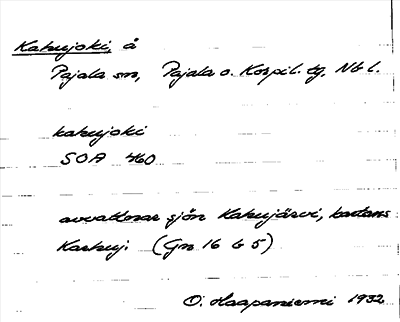 Kahujoki, å
Pajala sn, Pajala o. Korpil. tg, Nb l.
kahujoki
SOA 460
avvattnar sjön Kahujärvi, kartans
Karhuj. (Gn 16 b 5)
O. Haapaniemi 1932